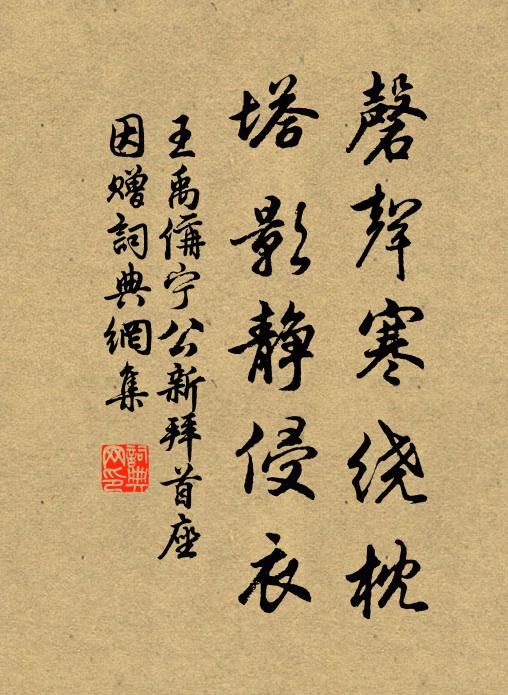 磬聲寒绕枕
塔影静侵衣
王禹偁宁公新拜首座
因赠詞典網集
詞典网印